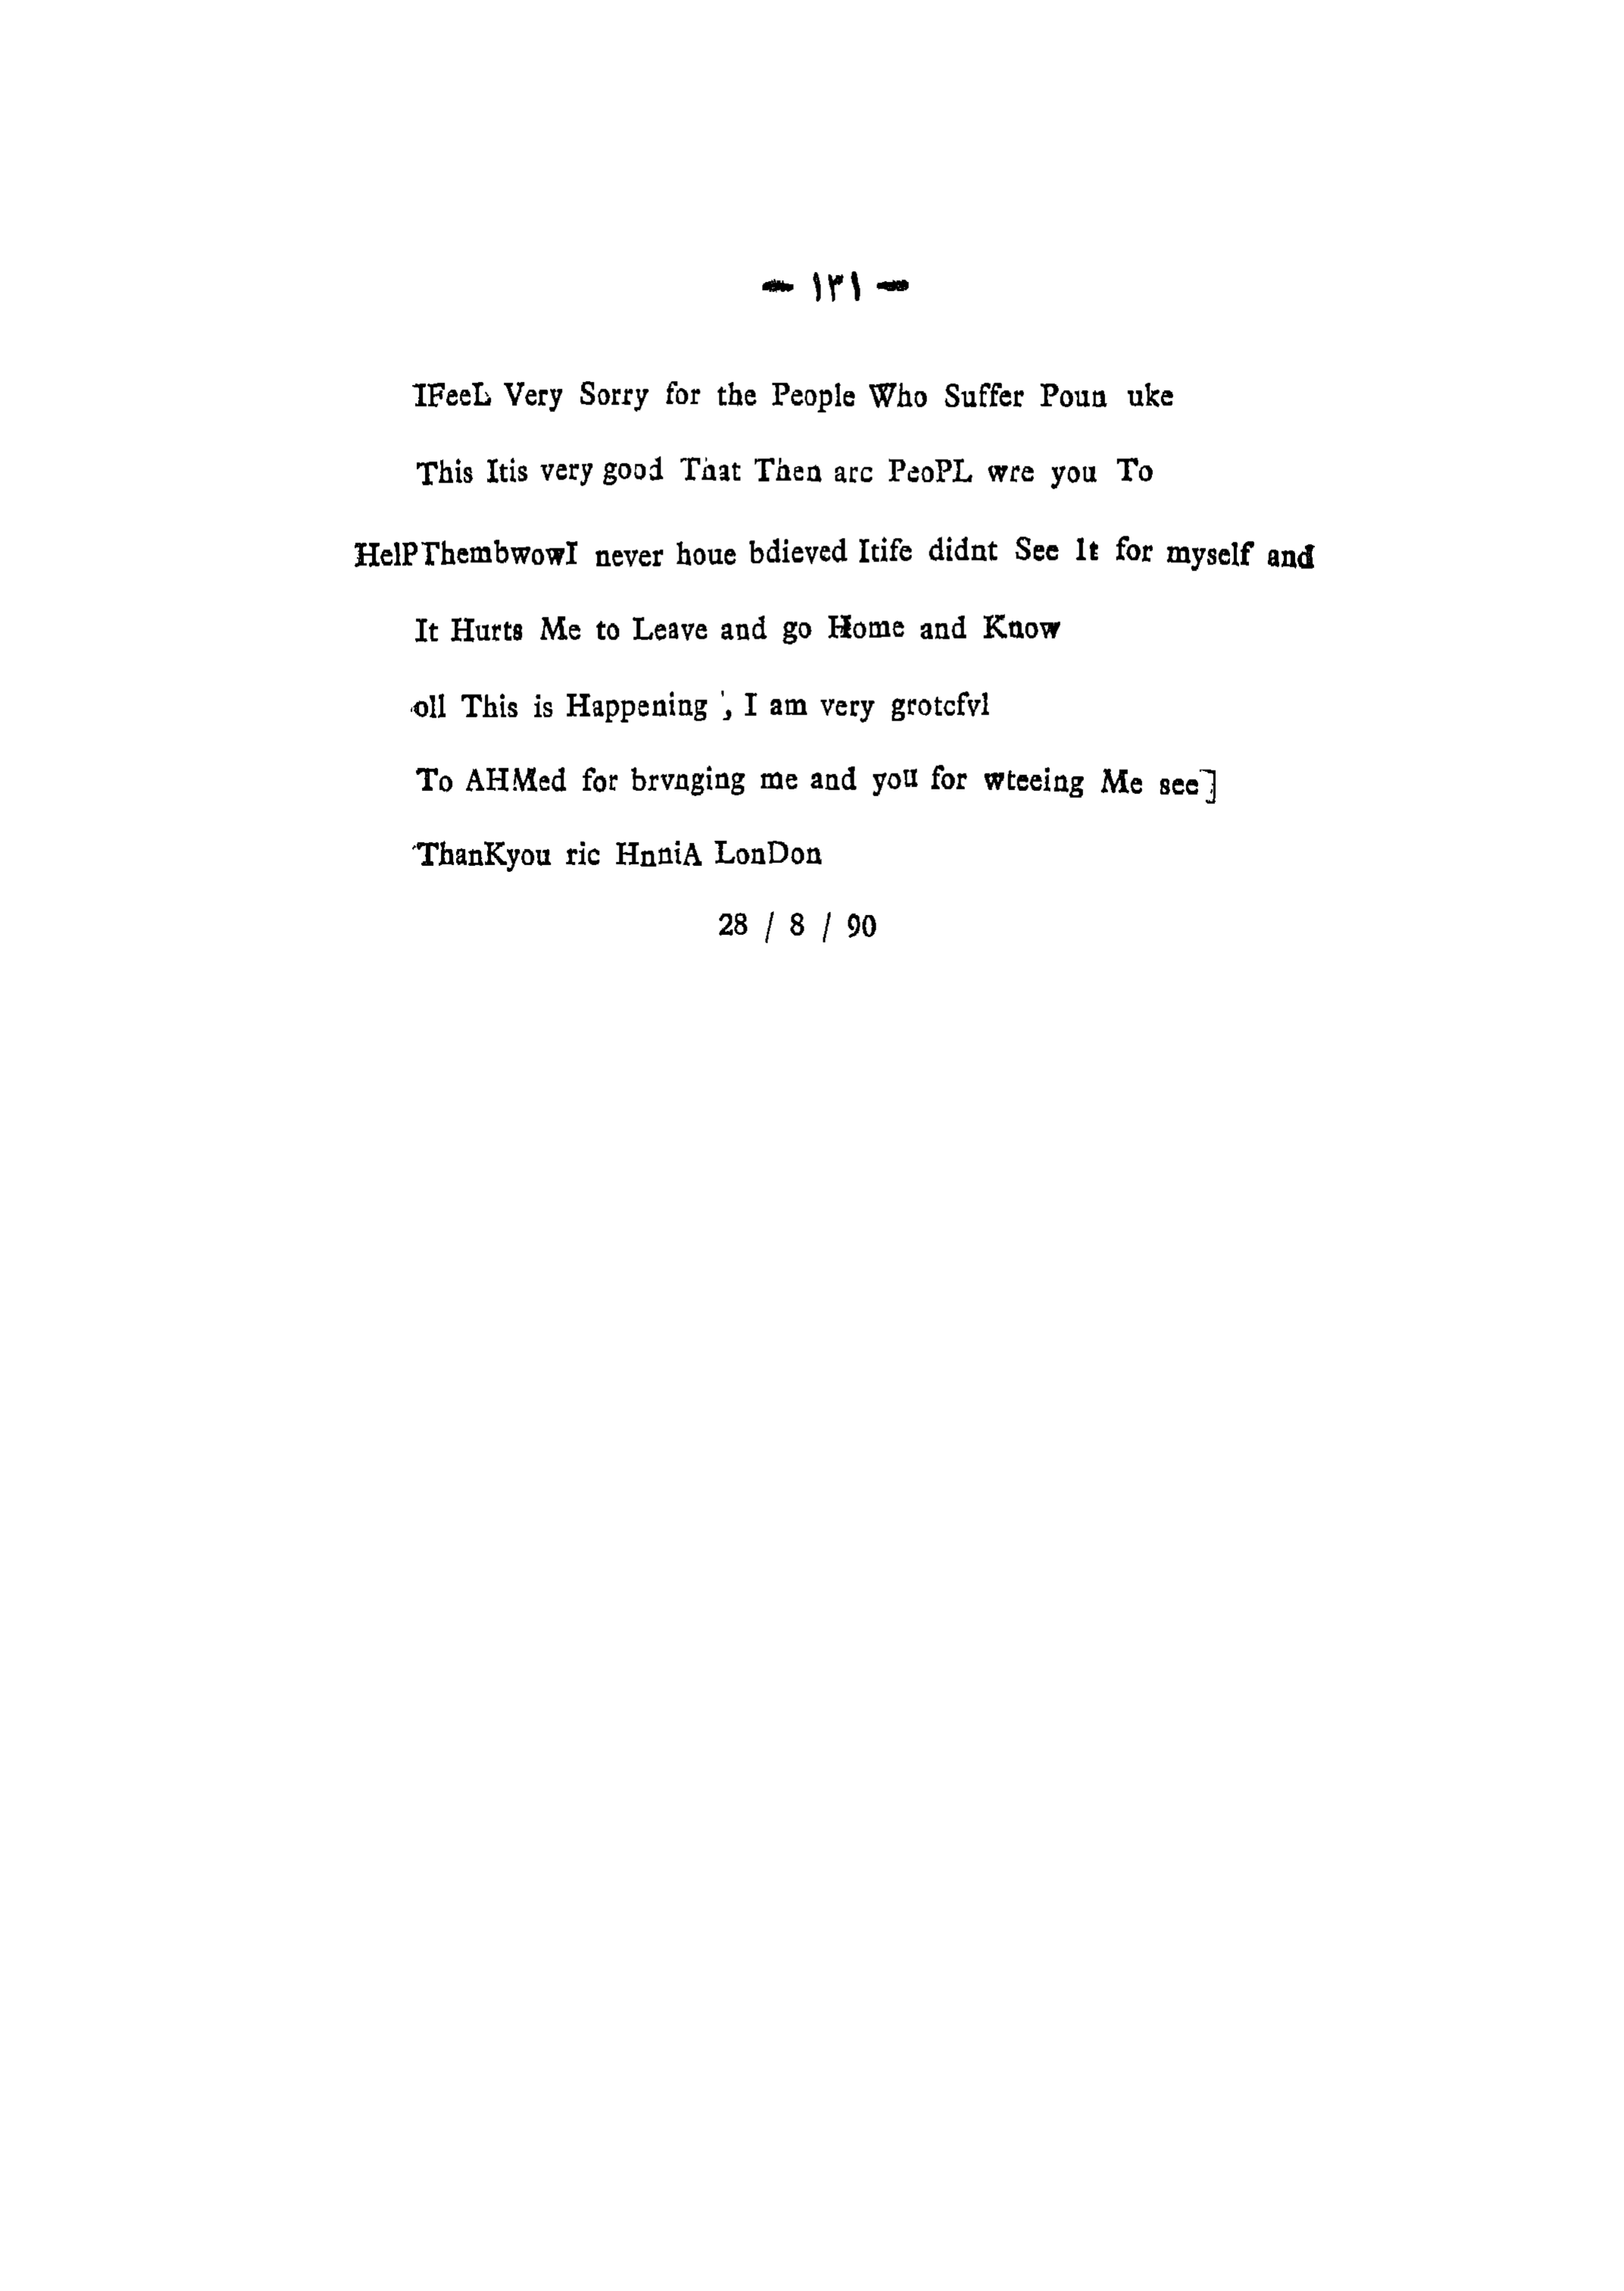 — ١٣١ —
IFeeL Very Sorry for the People Who Suffer Poun uke
This Itis very good That Then arc PeoPL wre you To
HelPThembwowI never houe bdieved Itife didnt See It for myself and
It Hurts Me to Leave and go Home and Know
oll This is Happening ', I am very grotcfvl
To AHMed for brvnging me and you for wteeing Me see]
ThanKyou ric HnniA LonDon
28 / 8 / 90